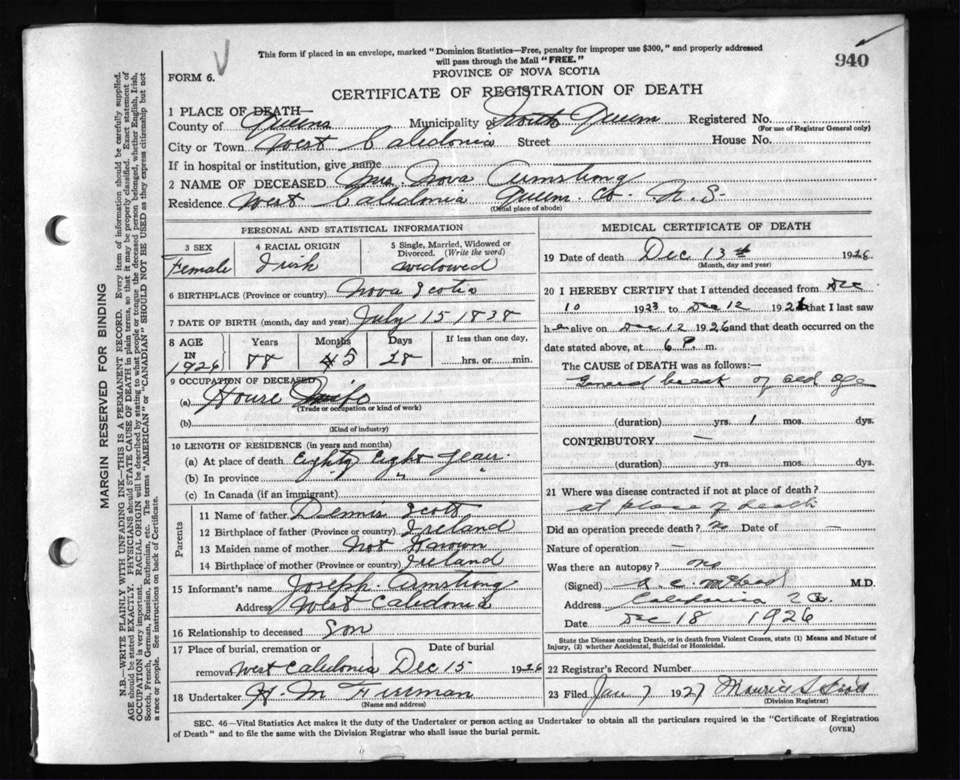 This form if placed in an envelope, marked "Dominion Statistics—Free, penalty for improper use $300," and properly addressed
will pass through the Mail "FREE."
940
FORM 6.
PROVINCE OF NOVA SCOTIA
CERTIFICATE OF REGISTRATION OF DEATH
1 PLACE OF DEATH—
County of Queens Municipality of North Queens Registered No.
(For use of Registrar General only)
City or Town West Caledonia Street House No.
If in hospital or institution, give name
2 NAME OF DECEASED Mrs. Nova Armstrong
Residence West Caledonia Queens Co. N.S.
(Usual place of abode)
PERSONAL AND STATISTICAL INFORMATION
3 SEX 4 RACIAL ORIGIN 5 Single, Married, Widowed or Divorced. (Write the word)
Female Irish widowed
6 BIRTHPLACE (Province or country) Nova Scotia
7 DATE OF BIRTH (month, day and year) July 15 1838
8 AGE IN 1926 Years Months Days If less than one day,
88 5 28 hrs. or min.
9 OCCUPATION OF DECEASED
(a) House Wife
(Trade or occupation or kind of work)
(b)
(Kind of industry)
10 LENGTH OF RESIDENCE (in years and months)
(a) At place of death Eighty Eight Years
(b) In province " "
(c) In Canada (if an immigrant)
Parents
11 Name of father Dennis Scott
12 Birthplace of father (Province or country) Ireland
13 Maiden name of mother Not Known
14 Birthplace of mother (Province or country) Ireland
15 Informant's name Joseph Armstrong
Address West Caledonia
16 Relationship to deceased Son
17 Place of burial, cremation or removal Date of burial
West Caledonia Dec 15 1926
18 Undertaker H. M. Freeman
(Name and address)
MEDICAL CERTIFICATE OF DEATH
19 Date of death Dec 13th 1926
(Month, day and year)
20 I HEREBY CERTIFY that I attended deceased from Dec
10 1923 to Dec 12 1926 that I last saw
her alive on Dec 12 1926 and that death occurred on the
date stated above, at 6 P. m.
The CAUSE of DEATH was as follows:—
General break of old age
(duration) yrs. 1 mos. dys.
CONTRIBUTORY —
(duration) yrs. mos. dys.
21 Where was disease contracted if not at place of death?
at place of death
Did an operation precede death? no Date of —
Nature of operation —
Was there an autopsy? no
(Signed) M.D.
Address Caledonia
Date Dec 18 1926
State the Disease causing Death, or in death from Violent Causes, state (1) Means and Nature of
Injury, (2) whether Accidental, Suicidal or Homicidal.
22 Registrar's Record Number
23 Filed Jan 7 1927 Maurice
(Division Registrar)
SEC. 46—Vital Statistics Act makes it the duty of the Undertaker or person acting as Undertaker to obtain all the particulars required in the "Certificate of Registration
of Death" and to file the same with the Division Registrar who shall issue the burial permit.
(OVER)
MARGIN RESERVED FOR BINDING
N.B.—WRITE PLAINLY WITH UNFADING INK—THIS IS A PERMANENT RECORD. Every item of information should be carefully supplied.
AGE should be stated EXACTLY. PHYSICIANS should STATE CAUSE OF DEATH in plain terms, so that it may be properly classified. Exact statement of
OCCUPATION is very important. RACIAL ORIGIN will be described by stating to what people or tongue the deceased person belonged, whether English, Irish,
Scotch, French, German, Russian, Ruthenian, etc. The terms "AMERICAN" or "CANADIAN" SHOULD NOT BE USED as they express citizenship but not
a race or people. See instructions on back of Certificate.